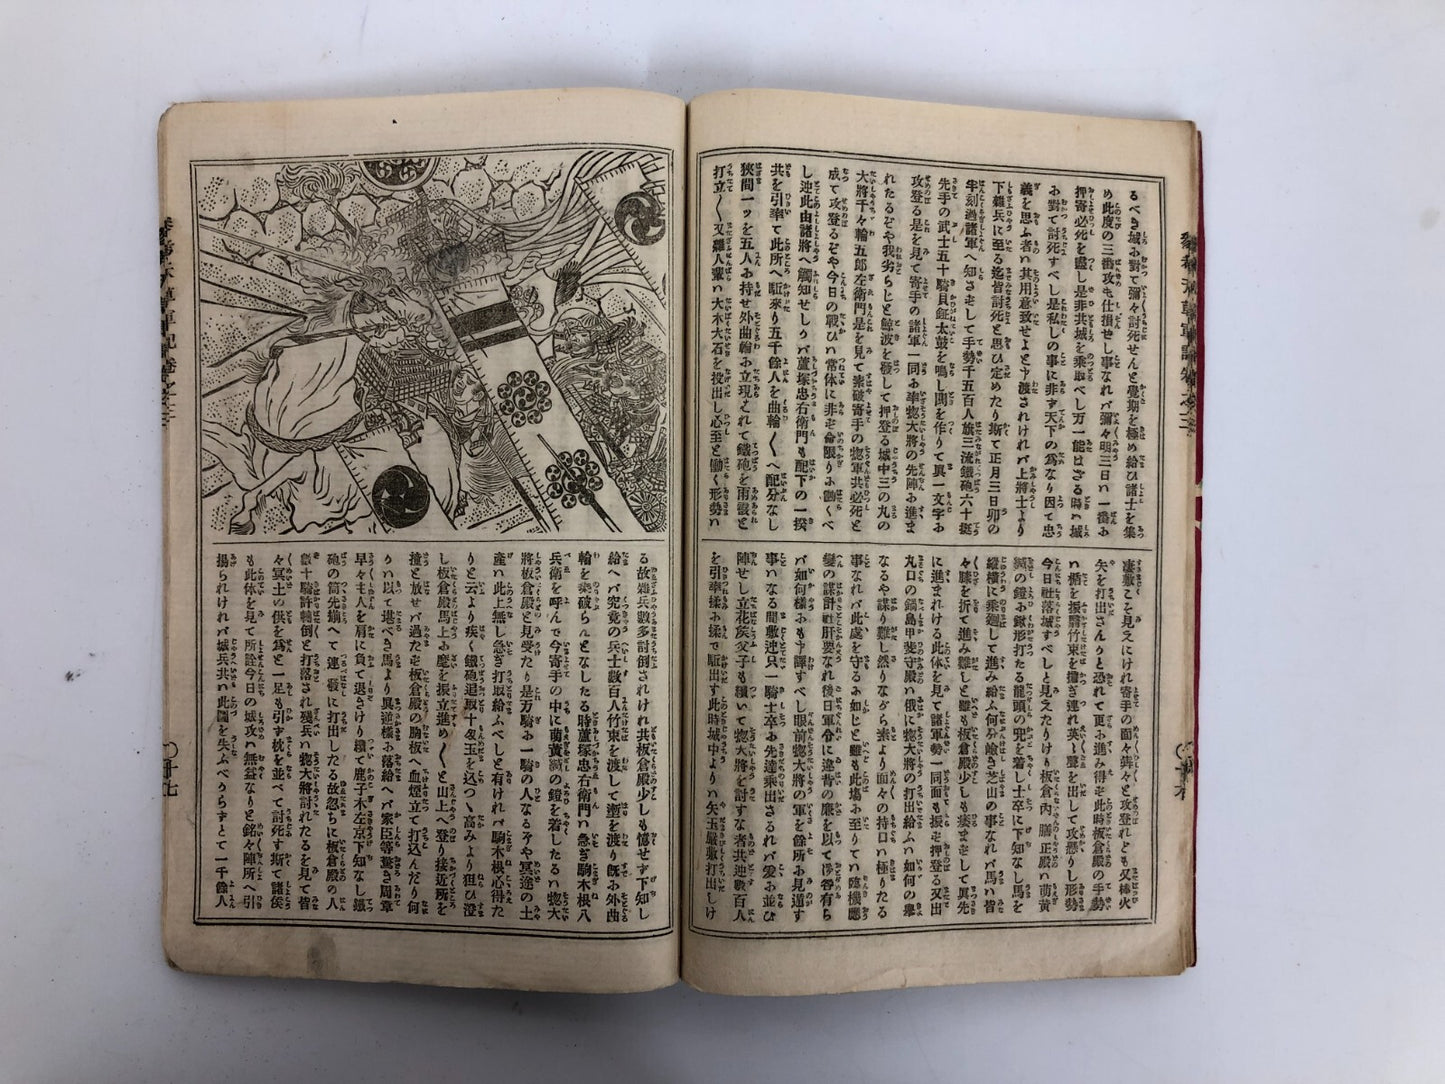 るべき城お對て彌々討死せんと覺期を極め給ひ諸士を集
め此度の三番攻も仕損せし事なれバ彌々明三日ハ一番お
押寄必死を盡し是非共城を乘取べし万一能はざる時ハ城
お對て討死すべし是私しの事に非ず天下の爲なり因て忠
義を思ふ者ハ其用意致せよと申渡されけれバ上將士より
下雜兵に至る迄皆討死と思ひ定めたり斯て正月三日卯の
牢刻過諸軍へ知さをして手勢千五百人旗三流鐵砲六十挺
先手の武士五十騎貝鉦太鼓を鳴し閧を作りて異一文字お
攻登る是を見て寄手の諸軍一同お率惣大將の先陣お進ま
れたるぞや我劣らじと鯨波を發して押登る城中三の丸の
大將千々輪五郎左衛門是を見て素破寄手の惣軍共必死と
成て攻登るぞや今日の戰ひハ常体に非を命限りお働くべ
し迚此由諸將へ觸知せしりバ蘆塚忠右衛門も配下の一揆
共を引率て此所へ駈來り五千餘人を曲輪〱へ配分なし
狹間一ッを五人お持せ外曲輪お立現されて鐵砲を雨霰と
打立〱又雜人輩ハ大木大石を投出し心至と働く形勢ハ
凄敷こを見えにけれ寄手の面々犇々と攻登れとも又棒火
矢を打出さんりと恐れて更ふ進み得を此時板倉殿の手勢
ハ楯を振翳竹束を擔ぎ連れ英〱聲を出して攻懸りし形勢
今日社落城すべしと見えたりけり板倉內膳正殿ハ萠黄
縅の鎧お鍬形打たる龍頭の兜を着し士卒に下知なし馬を
縱横に乘廻して進み給ふ何分嶮き芝山の事なれバ馬ハ皆
々膝を折て進み難しと雖も板倉殿少しも痿まをして異先
に進まれける此体を見て諸軍勢一同面も振を押登る又出
丸口の鍋島甲斐守殿ハ俄に惣大將の打出給ふハ如何の擧
なるや謀り難し然りながら素より面々の持口ハ極りたる
事なれバ此處を守るお如じと雖も此塲お至りてハ臨機應
變の謀計社肝要なれ後日軍令に違背の廉を以て渉咎有ら
バ如何樣おも申譯すべし眼前惣大將の軍を餘所お見遁す
事ハなる間敷迚只一騎士卒お先達乘出さるれバ愛お並ひ
陣せし立花侯父子も續いて惣大將を討すな者共迚數百人
を引率揉お揉で駈出す此時城中よりハ矢玉嚴敷打出しけ
る故雜兵數多討倒されけれ共板倉殿少しも憶せず下知し
給へバ究竟の兵士數百人竹束を渡して塹を渡り旣お外曲
輪を乘破らんとなしたる時蘆塚忠右衛門ハ急ぎ駒木根八
兵衛を呼んで今寄手の中に萠黄縅の鎧を着したるハ惣大
將板倉殿と見受たり是万騎お一騎の人なるぞや冥途の土
產ハ此上無し急ぎ打取給ふべしと有けれバ駒木根心得た
りと云より疾く鐵砲追取十匁玉を込つゝ高みより狙ひ澄
し板倉殿馬上お麾を振立進め〱と山上へ登り接近所を
撞と放せバ過たを板倉殿の胸板へ血煙立て打込んだり何
りハ以て堪べき馬より異逆樣お落給へバ家臣等驚き周章
早々も人を肩に負て退きけり續て鹿子木左京下知なし鐵
砲の筒先揃へて連發に打出したる故忽ちに板倉殿の人
數十騎許轉倒と打落され殘兵ハ惣大將討れたるを見て皆
々冥土の供を爲と一足も引ず枕を並べて討死す斯て諸侯
も此体を見て所詮今日の城攻ハ無益なりと銘々陣所へ引
揚られけれバ城兵共ハ此圖を失ふべからずとて一千餘人